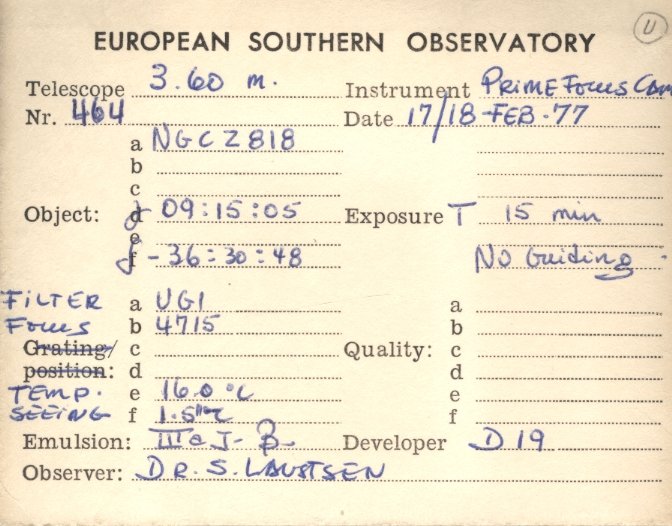 U
EUROPEAN SOUTHERN OBSERVATORY
Telescope 3.60 m. Instrument PRIME Focus Cam
Nr. 464 Date 17/18-FEB-77
a NGC 2818
b
c
Object: d 09:15:05 Exposure T 15 min
e
f -36:30:48 No Guiding
FILTER a UG1 a
Focus b 4715 b
Grating/ c Quality: c
position: d d
TEMP. e 16.0 °C e
SEEING f 1.5" f
Emulsion: III a J- Developer D19
Observer: DR. S. LAUSTSEN